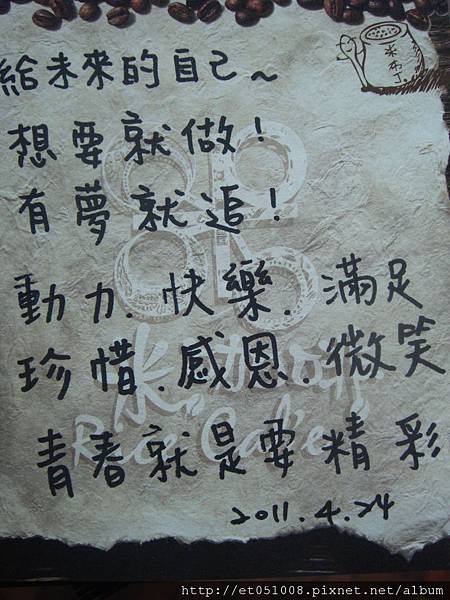 米布丁
給未來的自己~
想要就做!
有夢就追!
動力.快樂.滿足
珍惜.感恩.微笑
青春就是要精彩
2011.4.24
Rice Cake
http://et051008.pixnet.net/album